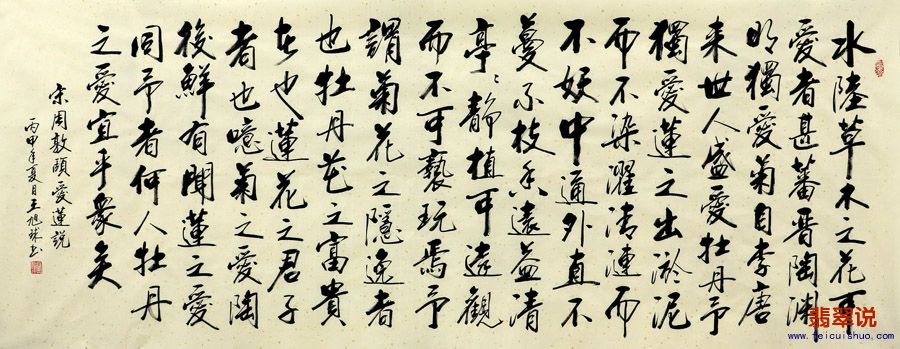 水陸草木之花可
愛者甚蕃晋陶渊
明獨愛菊自李唐
来世人盛愛牡丹予
獨愛蓮之出淤泥
而不染濯清漣而
不妖中通外直不
蔓不枝香遠益清
亭〻静植可遠觀
而不可褻玩焉予
謂菊花之隱逸者
也牡丹花之富貴
者也蓮花之君子
者也噫菊之愛陶
後鮮有聞蓮之愛
同予者何人牡丹
之愛宜乎衆矣
宋周敦頤愛蓮説
丙申年夏日王旭球书
翡翠说
www.feicuishuo.com